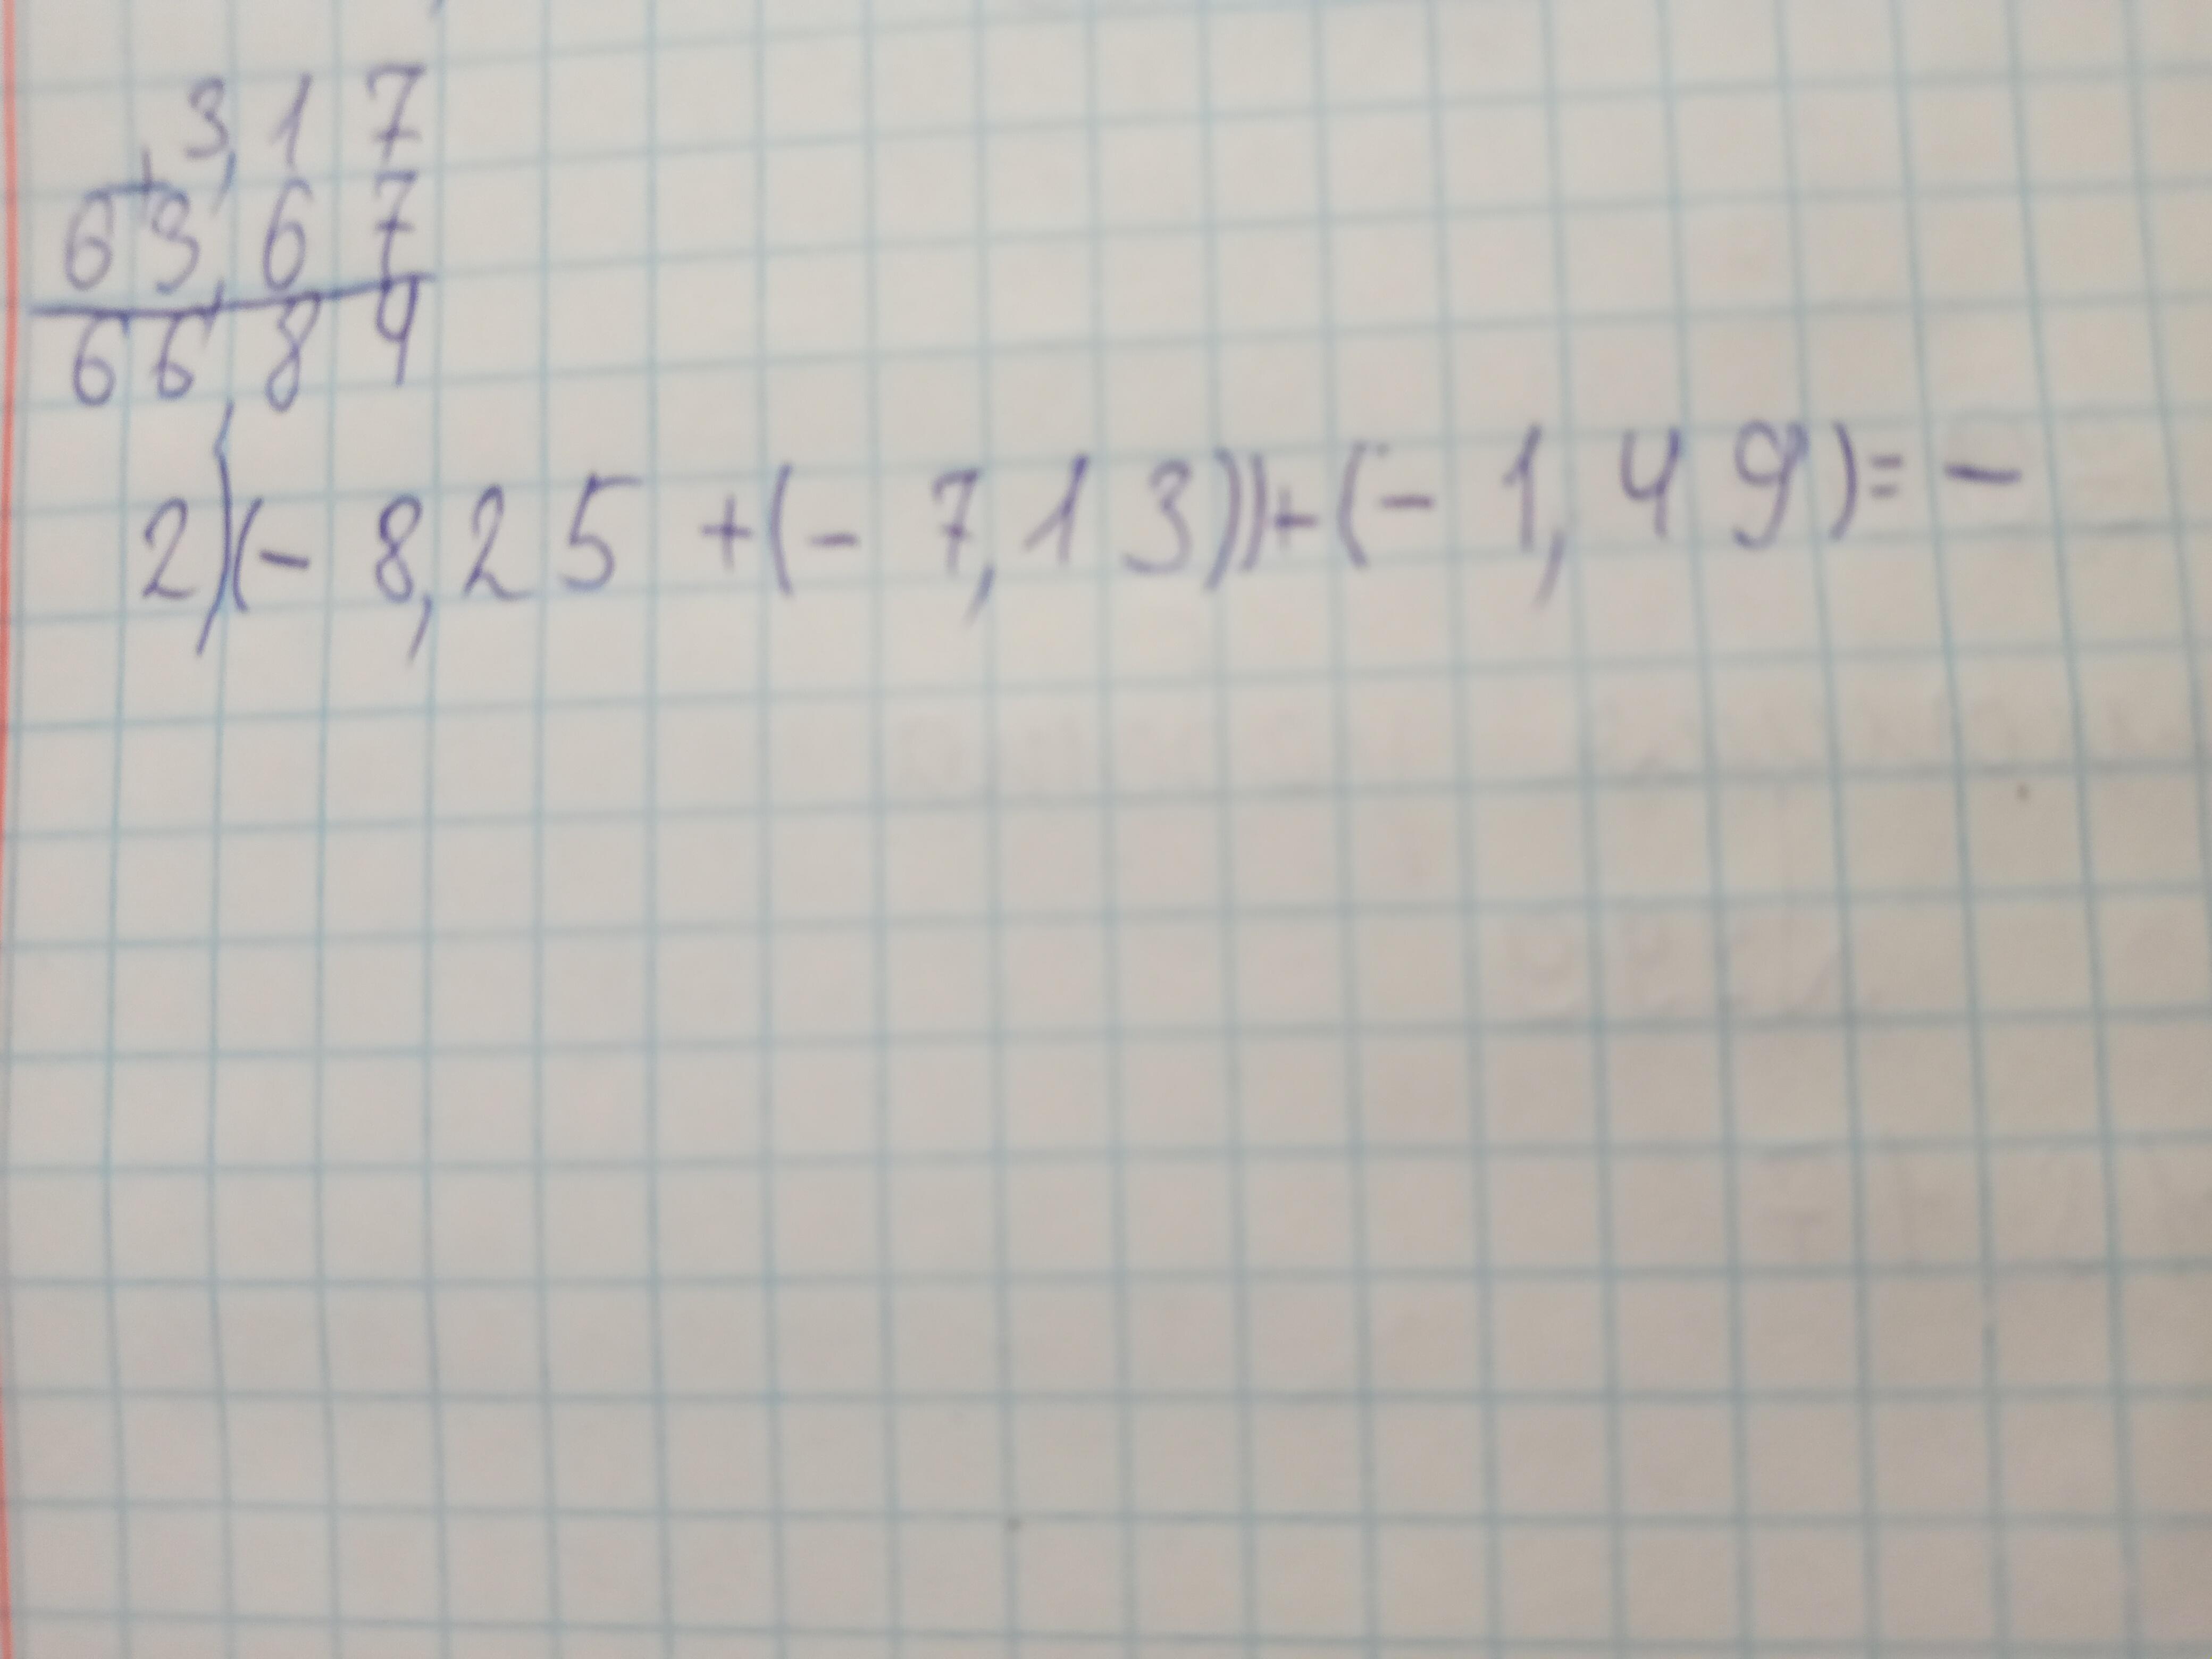 3,17
+
63,67
66,84
2) (- 8,25 + (- 7,13)) + (- 1,49) = -